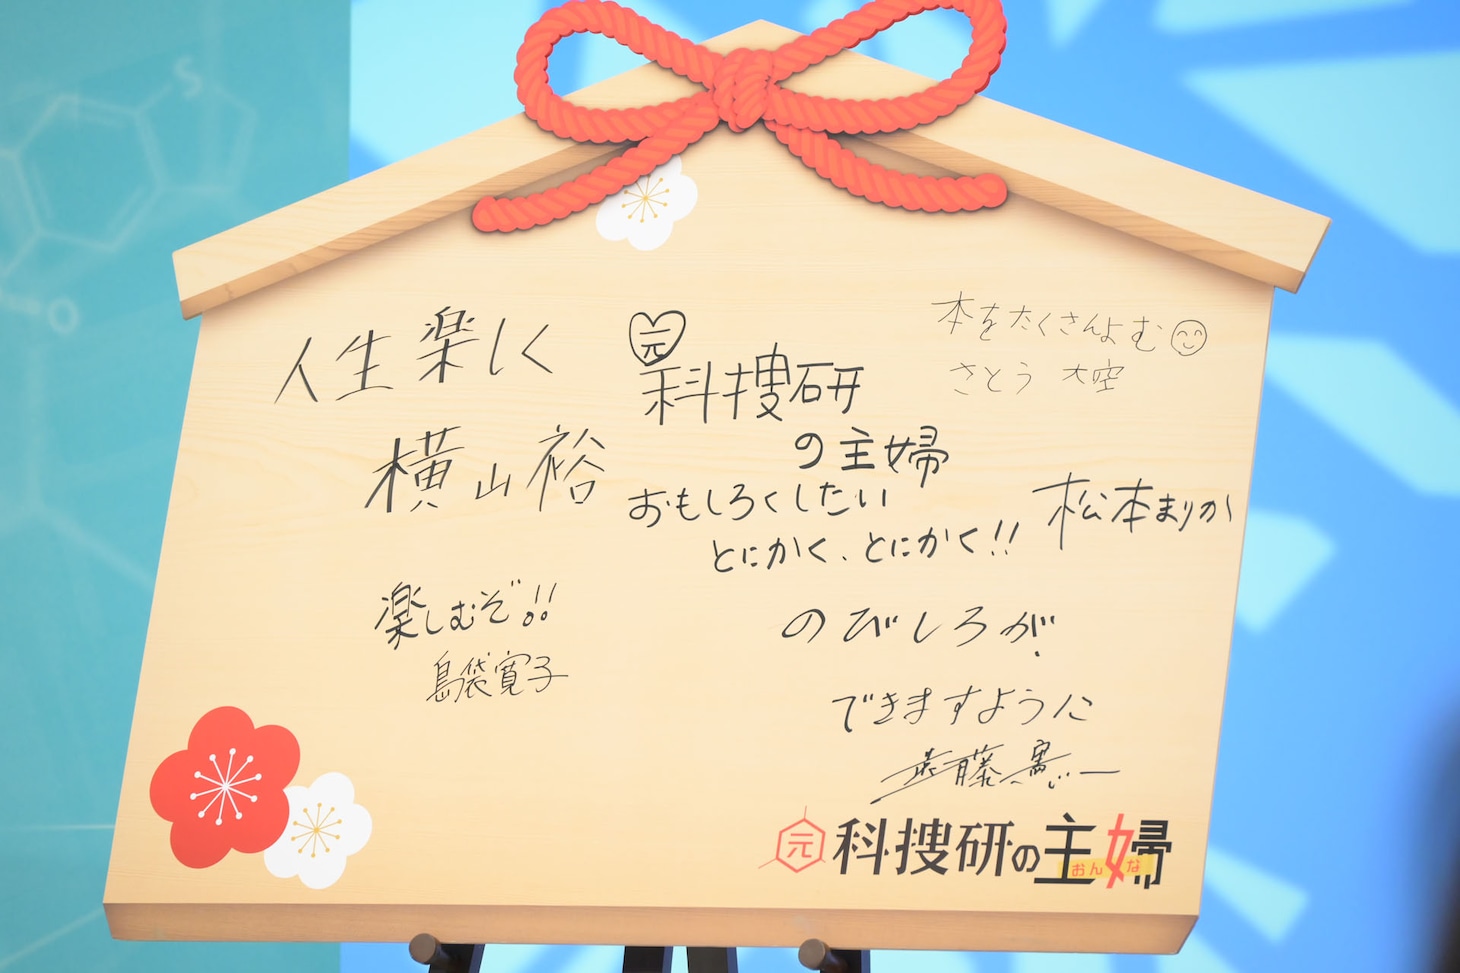 人生楽しく
横山裕
元
科捜研
の主婦
おもしろくしたい
とにかく、とにかく!!
松本まりか
本をたくさんよむ
さとう 大空
楽しむぞ!!
島袋寛子
のびしろが
できますように
遠藤憲一
元科捜研の主婦
おんな
S
O